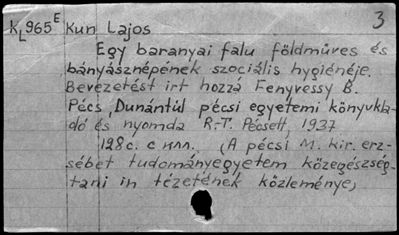 3
KL965E Kun Lajos
Egy baranyai falu földműves és
bányásznépének szociális hygiénéje.
Bevezetést irt hozzá Fenyvessy B.
Pécs, Dunántúl pécsi egyetemi könyvkia-
dó és nyomda R.-T. Pécsett, 1937
128c. с илл. (A pécsi M. kir. erz-
sébet tudományegyetem közegészség-
tani in tézetének közleménye)